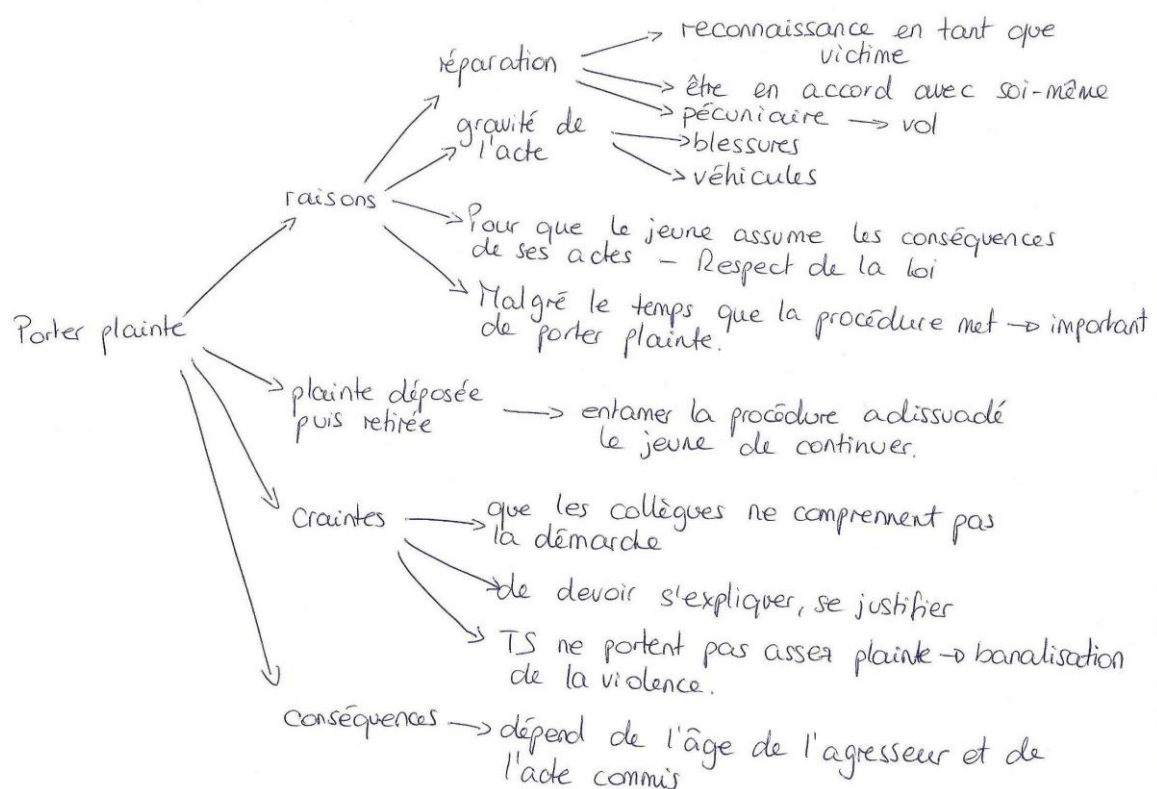 reconnaissance en tant que
victime
réparation
être en accord avec soi-même
pécuniaire → vol
gravité de
l'acte
blessures
véhicules
raisons
Pour que le jeune assume les conséquences
de ses actes – Respect de la loi
Malgré le temps que la procédure met → important
de porter plainte.
Porter plainte
plainte déposée
puis retirée
entamer la procédure a dissuadé
le jeune de continuer.
Craintes
que les collègues ne comprennent pas
la démarche
de devoir s'expliquer, se justifier
TS ne portent pas assez plainte → banalisation
de la violence.
conséquences
dépend de l'âge de l'agresseur et de
l'acte commis